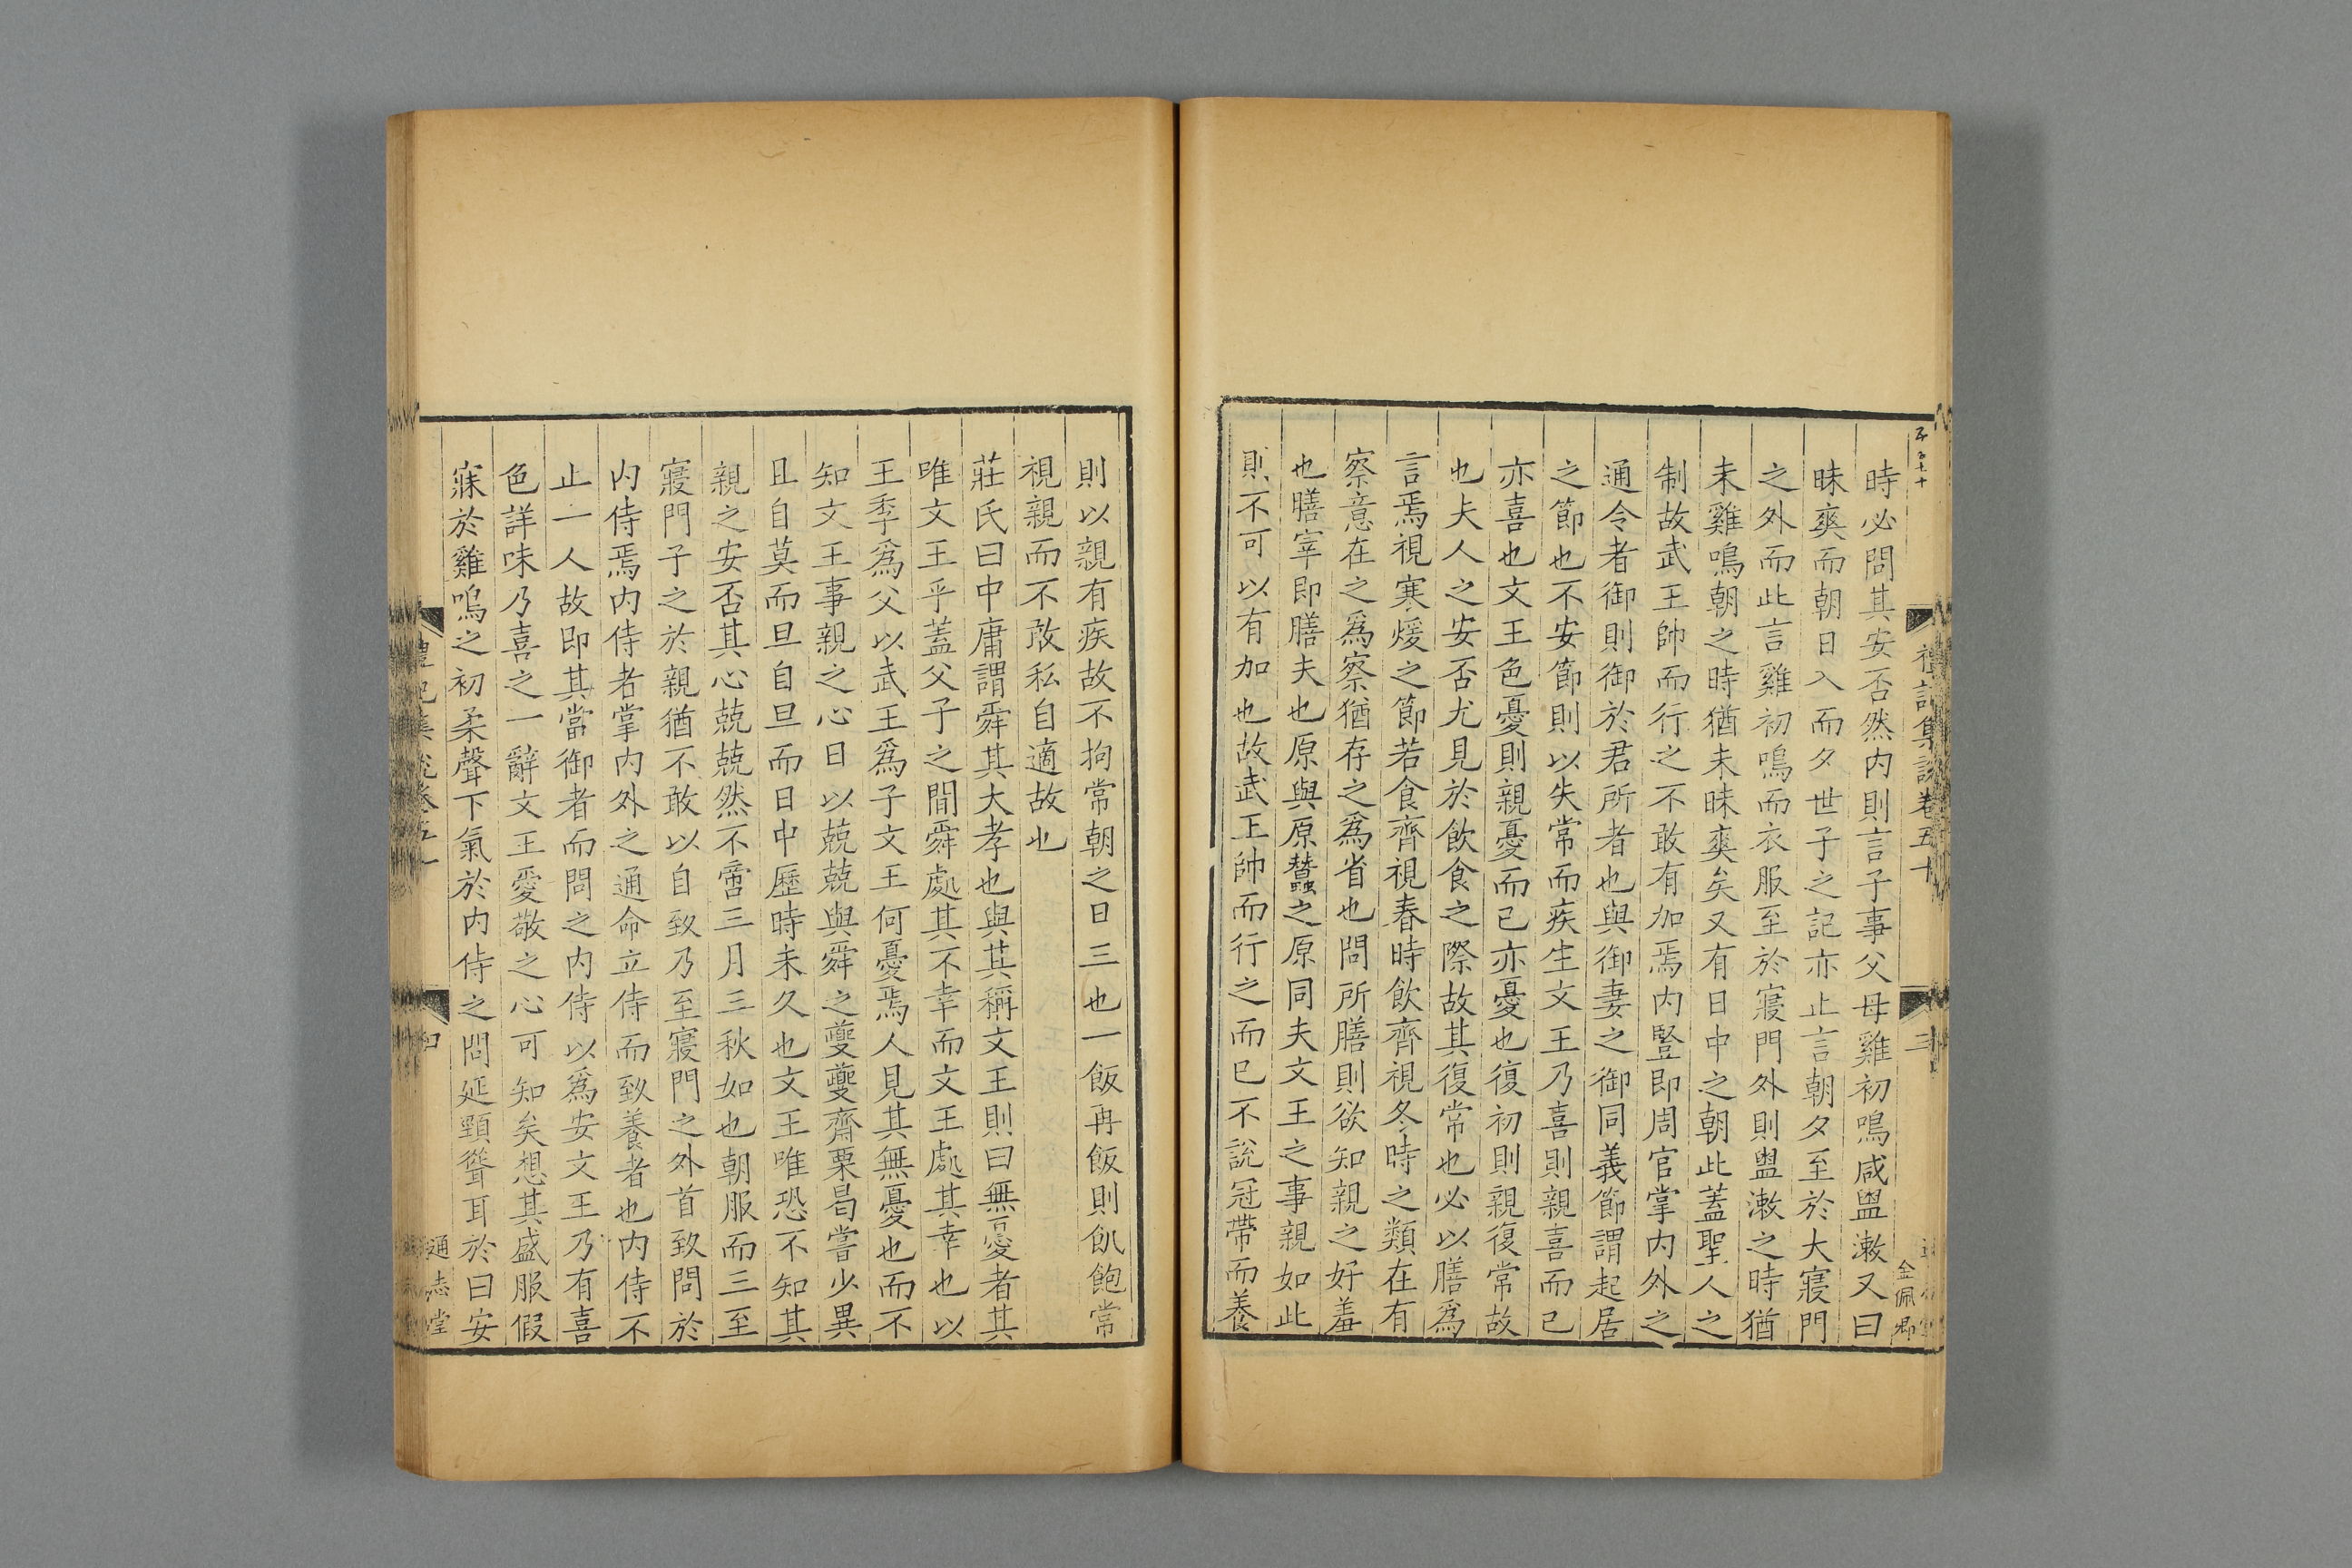 時必問其安否然内則言子事父母雞初鳴咸盥漱又曰
昧爽而朝日入而夕世子之記亦止言朝夕至於大寢門
之外而此言雞初鳴而衣服至於寢門外則盥漱之時猶
未雞鳴朝之時猶未昧爽矣又有日中之朝此蓋聖人之
制故武王帥而行之不敢有加焉内豎即周官掌内外之
通令者御則御於君所者也與御妻之御同義節謂起居
之節也不安節則以失常而疾生文王乃喜則親喜而已
亦喜也文王色憂則親憂而已亦憂也復初則親復常故
也夫人之安否尤見於飲食之際故其復常也必以膳爲
言焉視寒煖之節若食齊視春時飲齊視冬時之類在有
察意在之爲察猶存之爲省也問所膳則欲知親之好羞
也膳宰即膳夫也原與原蠶之原同夫文王之事親如此
則不可以有加也故武王帥而行之而已不說冠帶而養
禮記集說卷五十
三
金佩卿
則以親有疾故不拘常朝之日三也一飯再飯則飢飽常
視親而不敢私自適故也
莊氏曰中庸謂舜其大孝也與其稱文王則曰無憂者其
唯文王乎蓋父子之間舜處其不幸而文王處其幸也以
王季爲父以武王爲子文王何憂焉人見其無憂也而不
知文王事親之心日以兢兢與舜之夔夔齊栗曷嘗少異
且自莫而旦自旦而日中歷時未久也文王唯恐不知其
親之安否其心兢兢然不啻三月三秋如也朝服而三至
寢門子之於親猶不敢以自致乃至寢門之外首致問於
内侍焉内侍者掌内外之通命立侍而致養者也内侍不
止一人故即其當御者而問之内侍以爲安文王乃有喜
色詳味乃喜之一辭文王愛敬之心可知矣想其盛服假
寐於雞鳴之初柔聲下氣於内侍之問延頸聳耳於曰安
通志堂